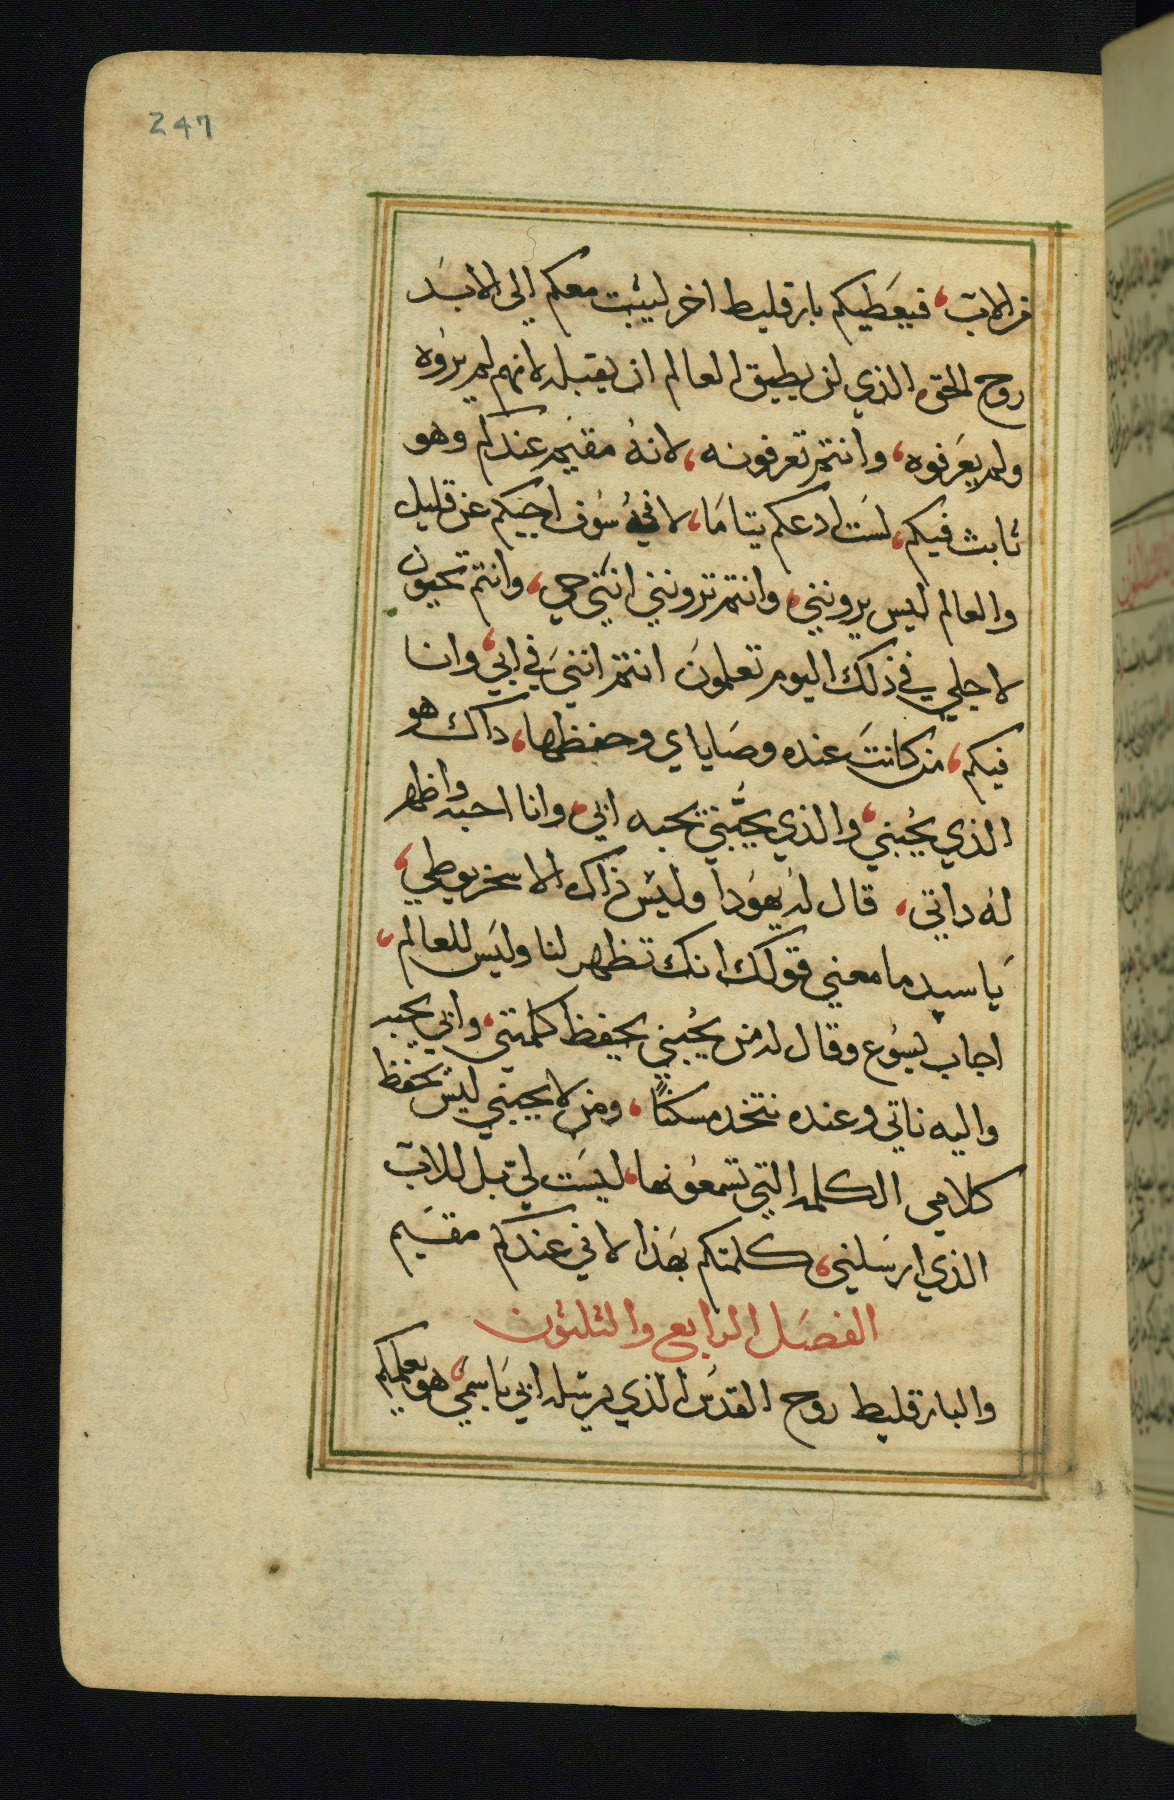 247
من الاب، فيعطيكم بارقليط اخر ليثبت معكم الى الابد
روح الحق الذي لن يطيق العالم ان يقبله لانهم لم يروه
ولم يعرفوه، وانتم تعرفونه، لانهُ مقيم عندكم وهو
ثابث فيكم، لست ادعكم يتاما، لاني سوف اجيكم عن قليل
والعالم ليس يرونني، وانتم ترونني انني حي، وانتم تحيون
لاجلي في ذلك اليوم تعلمون انتم انني في ابي، وانا
فيكم، من كانت عنده وصاياي وحفظها، داك هو
الذي يحُبني، والذي يحبّني يحبه ابي، وانا احبه واظهر
لهُ داتي، قال له يهودا وليس ذاك الاسخريوطي،
يا سيد ما معني قولك انك تظهر لنا وليس للعالم،
اجاب يسوع وقال له من يحُبني يحفظ كلمتي، وابي يحبه
واليه ناتي وعنده نتخد مسكنًا، ومن لا يحبني ليس يحفظ
كلامي الكلمه التي تسمعونها، ليست لي بل للاب
الذي ارسلني، كلمتكم بهذا لاني عندكم مقيم
الفصل الرابع والثلثون
والبارقليط روح القدس الذي يرسله ابي باسمي، هو يعلمكم